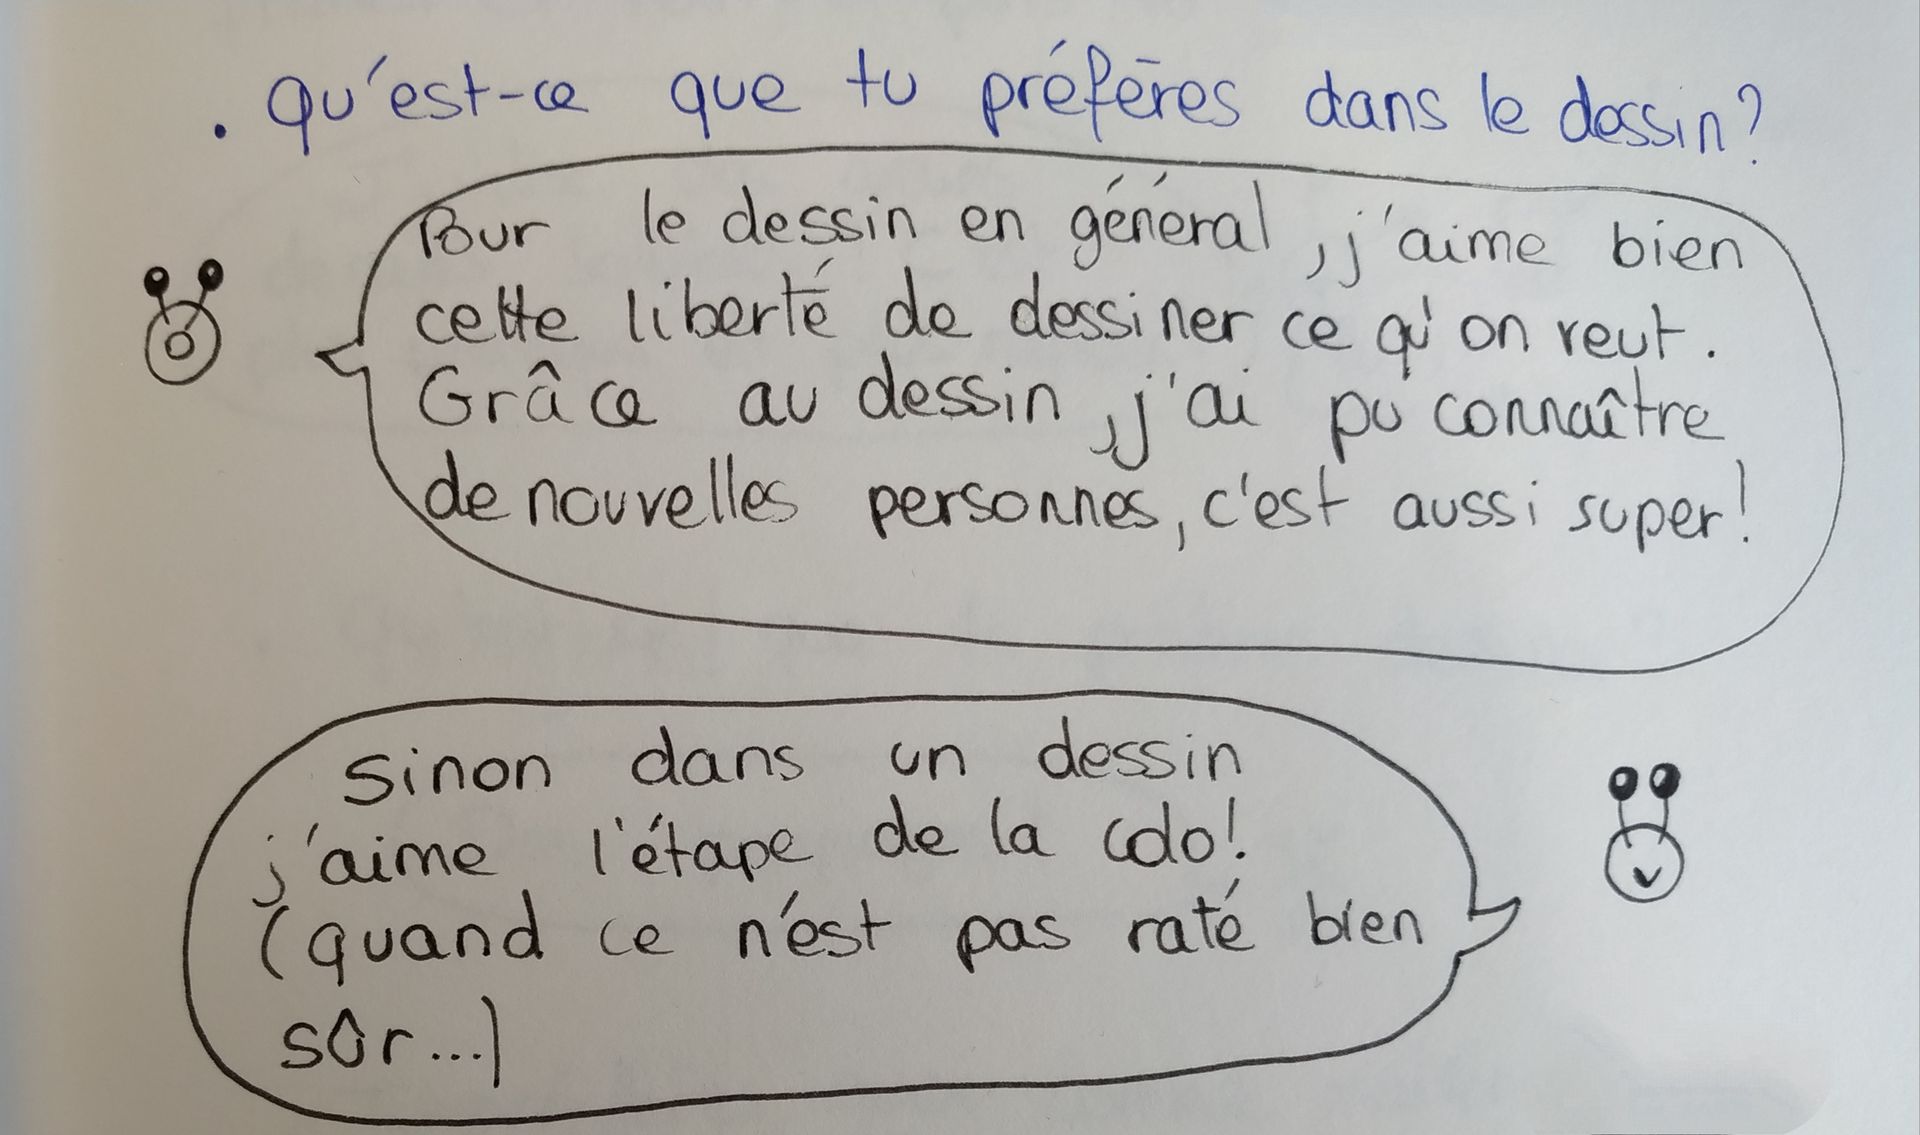 . qu'est-ce que tu préfères dans le dessin?
Pour le dessin en général, j'aime bien
cette liberté de dessiner ce qu'on veut.
Grâce au dessin, j'ai pu connaître
de nouvelles personnes, c'est aussi super!
Sinon dans un dessin
j'aime l'étape de la colo!
(quand ce n'est pas raté bien
sûr...)